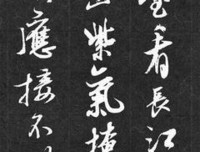 看長江
紫氣
應接不